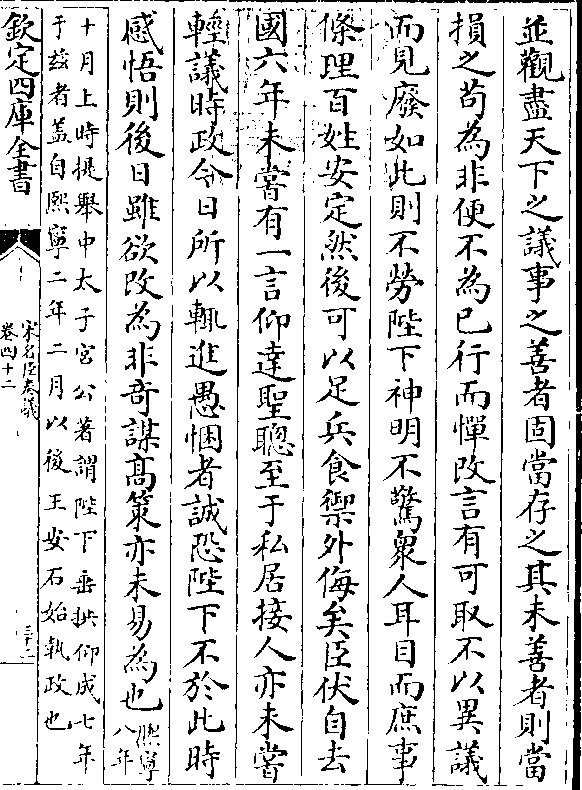 並觀盡天下之議事之善者固當存之其未善者則當
損之苟為非便不為已行而憚改言有可取不以異議
而見廢如此則不勞陛下神明不驚衆人耳目而庶事
條理百姓安定然後可以足兵食禦外侮矣臣伏自去
國六年未嘗有一言仰達聖聰至于私居接人亦未嘗
輕議時政今日所以輒進愚悃者誠恐陛下不於此時
感悟則後日雖欲改為非奇謀髙策亦未易為也熙寧
八年
十月上時提舉中太子宮公著謂陛下垂拱仰成七年
于兹者盖自熙寧二年二月以後王安石始執政也
欽定四庫全書
宋名臣奏議
卷四十二
三十二